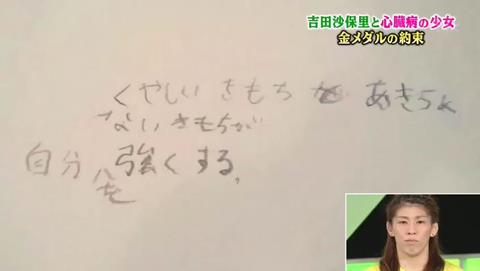 吉田沙保里と心臓病の少女
金メダルの約束
くやしい きもち と あきらめ
ない きもちが
自分を 強く する。